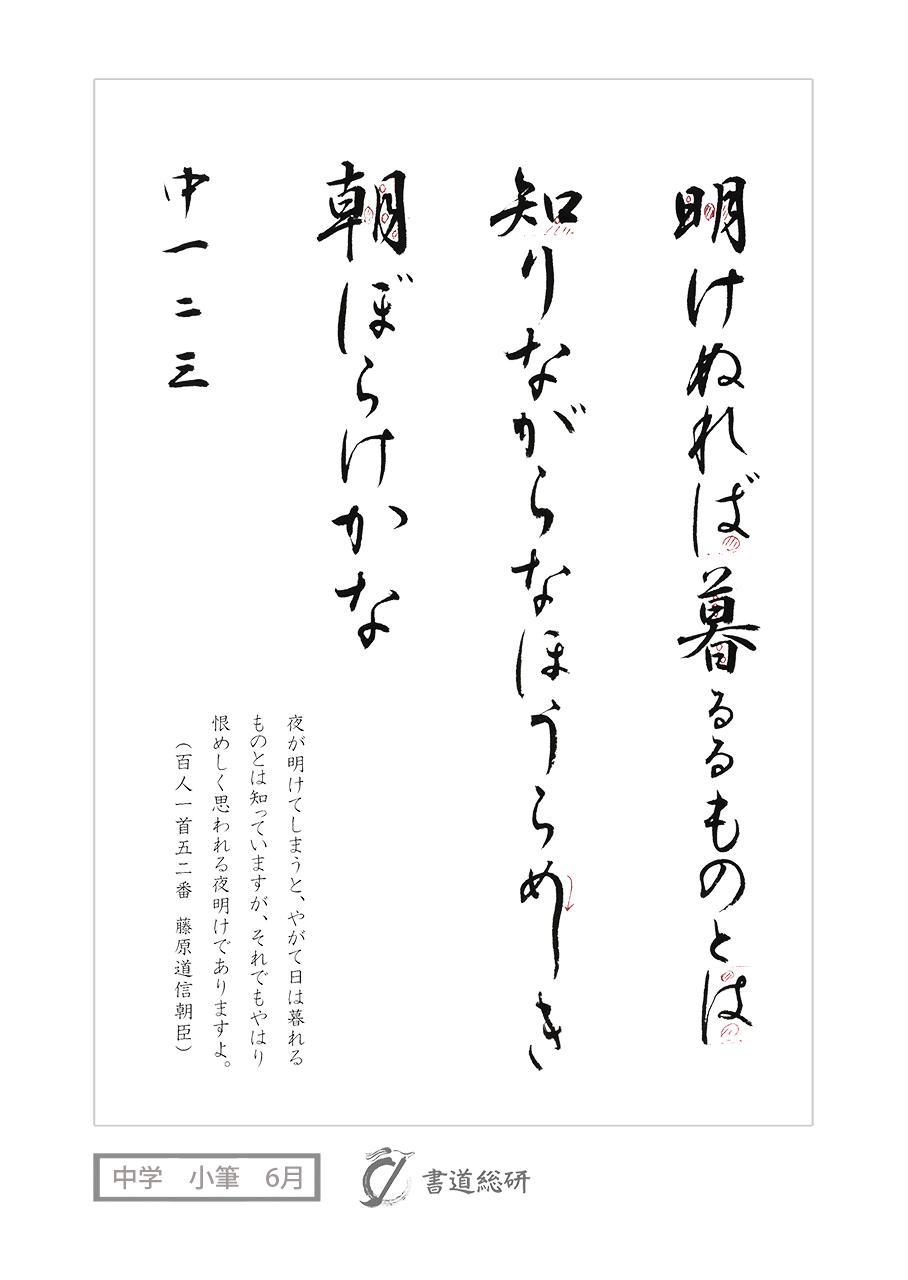 明けぬれば暮るるものとは
知りながらなほうらめしき
朝ぼらけかな
中一二三
夜が明けてしまうと、やがて日は暮れる
ものとは知っていますが、それでもやはり
恨めしく思われる夜明けでありますよ。
（百人一首五二番 藤原道信朝臣）
中学 小筆 6月
書道総研